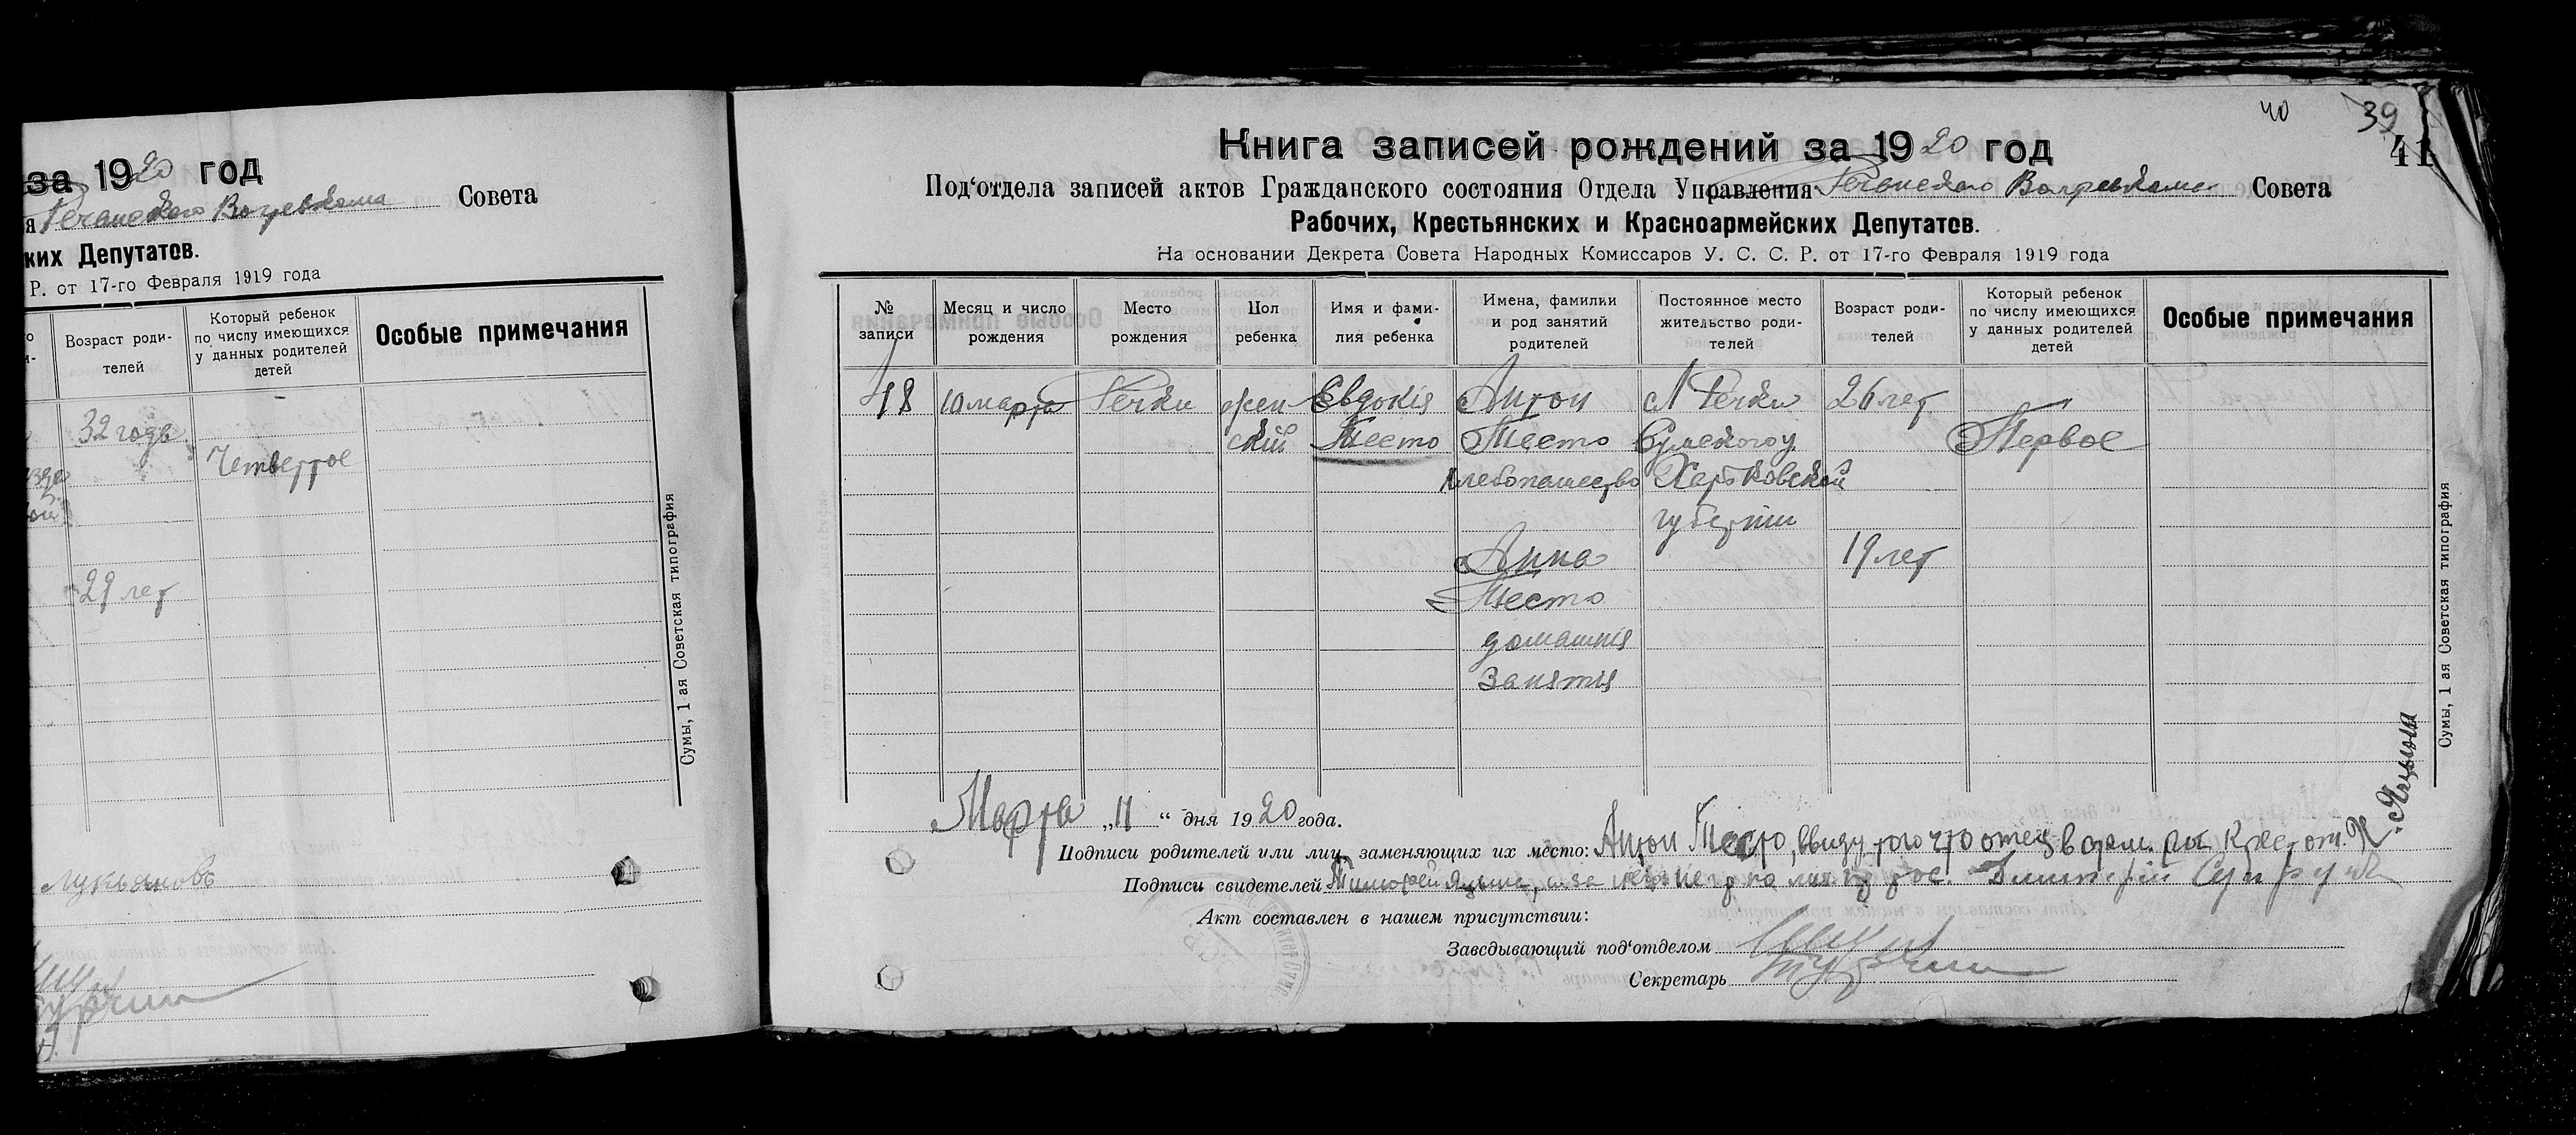 за 1920 год
Совета
ких Депутатов.
Р. от 17-го Февраля 1919 года
Возраст роди-
телей
Который ребенок
по числу имеющихся
у данных родителей
детей
Особые примечания
32 года
Четвертое
29 лет
Сумы, 1 ая Советская типография
Лукьяновъ
40
39
41
Книга записей рождений за 1920 год
Под‘отдела записей актов Гражданского состояния Отдела Управления Речанского Волревкома Совета
Рабочих, Крестьянских и Красноармейских Депутатов.
На основании Декрета Совета Народных Комиссаров У. С. С. Р. от 17-го Февраля 1919 года
№
записи
Месяц и число
рождения
Место
рождения
Пол
ребенка
Имя и фами-
лия ребенка
Имена, фамилии
и род занятий
родителей
Постоянное место
жительство роди-
телей
Возраст роди-
телей
Который ребенок
по числу имеющихся
у данных родителей
детей
Особые примечания
18 10 марта Речки жен Евдокія Антон с Речки 26 лет
скій Тесто Тесто Сумского у Первое
хлебопашество Харьковской
губернии
Анна 19 лет
Тесто
домашнія
занятія
Сумы, 1 ая Советская типография
Марта „11“ дня 1920 года.
Подписи родителей или лиц, заменяющих их место: Антон Тесто, ввиду того что отец
Подписи свидетелей Тимофей Яцына, Дмитрій
Акт составлен в нашем присутствии:
Заведывающий под‘отделом
Секретарь